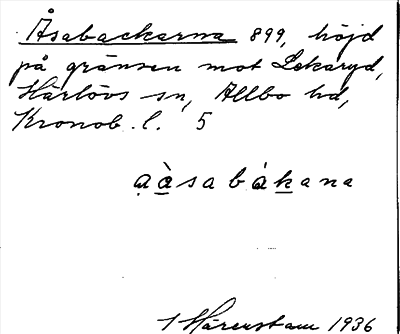 Åsabackarna 899, höjd
på gränsen mot Lekaryd,
Härlövs sn, Allbo hd,
Kronob. l. 5
ạàsabákana
1936